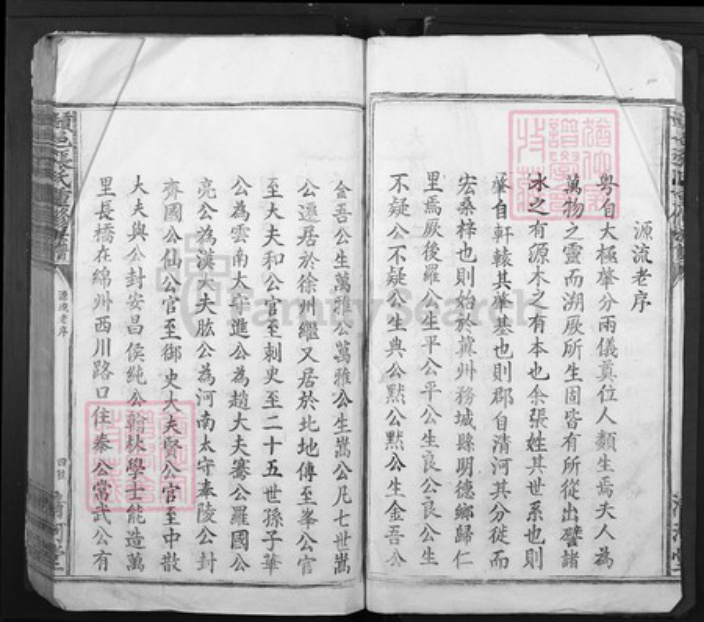 源流老序
粵自大極肇分兩儀奠位人類生焉夫人為
萬物之靈而溯厥所生固皆有所從出譬諸
水之有源木之有本也余張姓其世系也則
肇自軒轅其肇基也則郡自清河其分徙而
宏桑梓也則始於冀州務城縣明德鄉歸仁
里焉厥後羅公生平公平公生良公良公生
不疑公不疑公生典公默公默公生金吾公
金吾公生萬雅公萬雅公生嵩公凡七世嵩
公遷居於徐州繼又居於北地傳至峯公官
至大夫和公官至刺史至二十五世孫子華
公為雲南大守進公為趙大夫騫公羅國公
亮公為漢大夫肱公為河南太守奉陵公封
齊國公仙公官至御史大夫賢公官至中散
大夫與公封安昌侯純公翰林學士能造萬
里長橋在綿州西川路口住奉公常武公有
源流老序
清河堂
FamilySearch